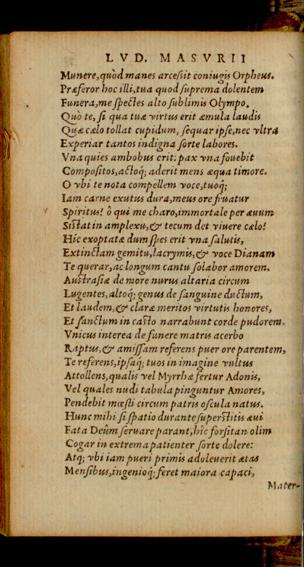 LVD. MASVRII
Munere, quòd manes arcessit coniugis Orpheus.
Præferor hoc illi, tua quod suprema dolentem
Funera, me spectes alto sublimis Olympo.
Quò te, si qua tuæ virtus erit æmula laudis
Quæ cælo tollat cupidum, sequar ipse, nec vltra
Experiar tantos indigna sorte labores.
Vna quies ambobus erit: pax vna fouebit
Compositos, actoq; aderit mens æqua timore.
O vbi te nota compellem voce, tuoq;
Iam carne exutus dura, meus ore fruatur
Spiritus! ô qui me charo, immortale per æuum
Sistat in amplexu, & tecum det viuere cælo!
Hic exoptatæ dum spes erit vna salutis,
Extinctam gemitu, lacrymis, & voce Dianam
Te querar, ac longum cantu solabor amorem.
Austrasiæ de more nurus altaria circum
Lugentes, altoq; genus de sanguine ductum,
Et laudem, & claræ meritos virtutis honores,
Et sanctum in casto narrabunt corde pudorem.
Vnicus interea de funere matris acerbo
Raptus, & amissam referens puer ore parentem,
Te referens, ipsaq; tuos in imagine vultus
Attollens, qualis vel Myrrhæ fertur Adonis,
Vel quales nudi tabula pinguntur Amores,
Pendebit mœsti circum patris oscula natus.
Hunc mihi si spatio durante superstitis æui
Fata Deûm seruare parant, hîc forsitan olim
Cogar in extrema patienter sorte dolere:
Atq; vbi iam pueri primis adoleuerit ætas
Mensibus, ingenioq; feret maiora capaci,
Mater-